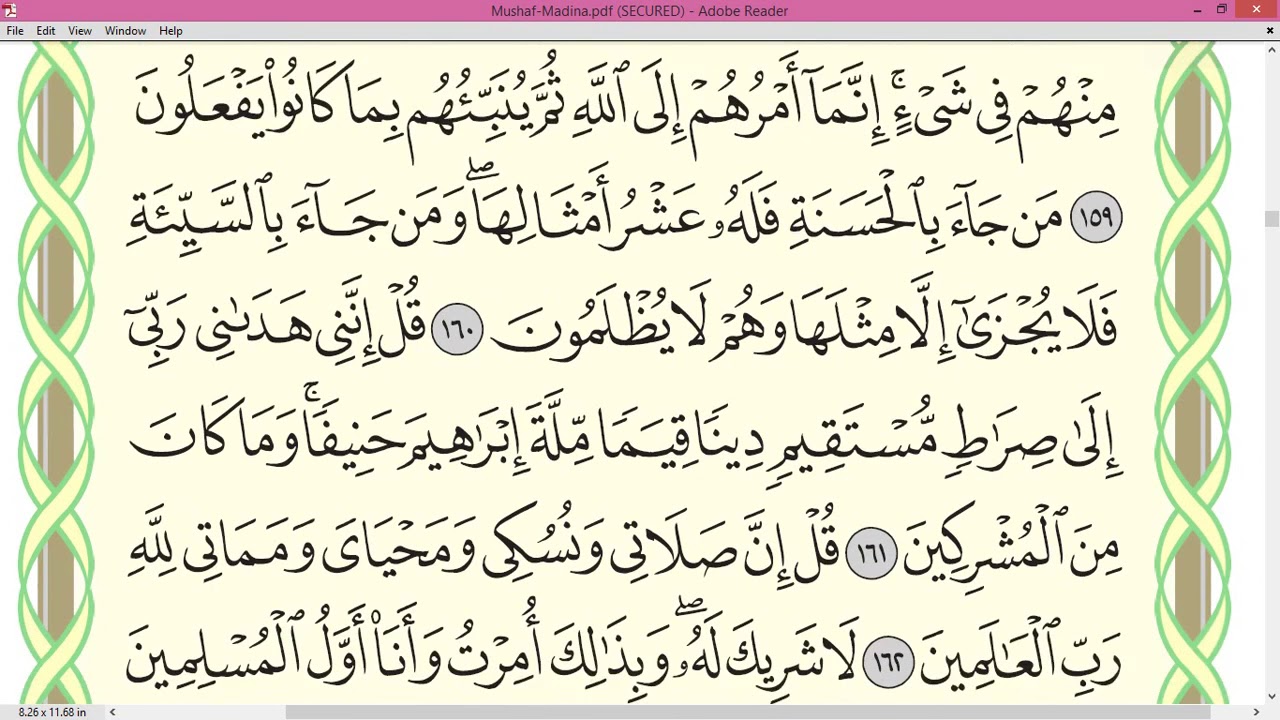 Mushaf-Madina.pdf (SECURED) - Adobe Reader
File Edit View Window Help
مِنْهُمْ فِى شَىْءٍ ۚ إِنَّمَآ أَمْرُهُمْ إِلَى ٱللَّهِ ثُمَّ يُنَبِّئُهُم بِمَا كَانُوا۟ يَفْعَلُونَ
١٥٩ مَن جَآءَ بِٱلْحَسَنَةِ فَلَهُۥ عَشْرُ أَمْثَالِهَا ۖ وَمَن جَآءَ بِٱلسَّيِّئَةِ
فَلَا يُجْزَىٰٓ إِلَّا مِثْلَهَا وَهُمْ لَا يُظْلَمُونَ ١٦٠ قُلْ إِنَّنِى هَدَىٰنِى رَبِّىٓ
إِلَىٰ صِرَٰطٍ مُّسْتَقِيمٍ دِينًا قِيَمًا مِّلَّةَ إِبْرَٰهِيمَ حَنِيفًا ۚ وَمَا كَانَ
مِنَ ٱلْمُشْرِكِينَ ١٦١ قُلْ إِنَّ صَلَاتِى وَنُسُكِى وَمَحْيَاىَ وَمَمَاتِى لِلَّهِ
رَبِّ ٱلْعَٰلَمِينَ ١٦٢ لَا شَرِيكَ لَهُۥ ۖ وَبِذَٰلِكَ أُمِرْتُ وَأَنَا۠ أَوَّلُ ٱلْمُسْلِمِينَ
8.26 x 11.68 in